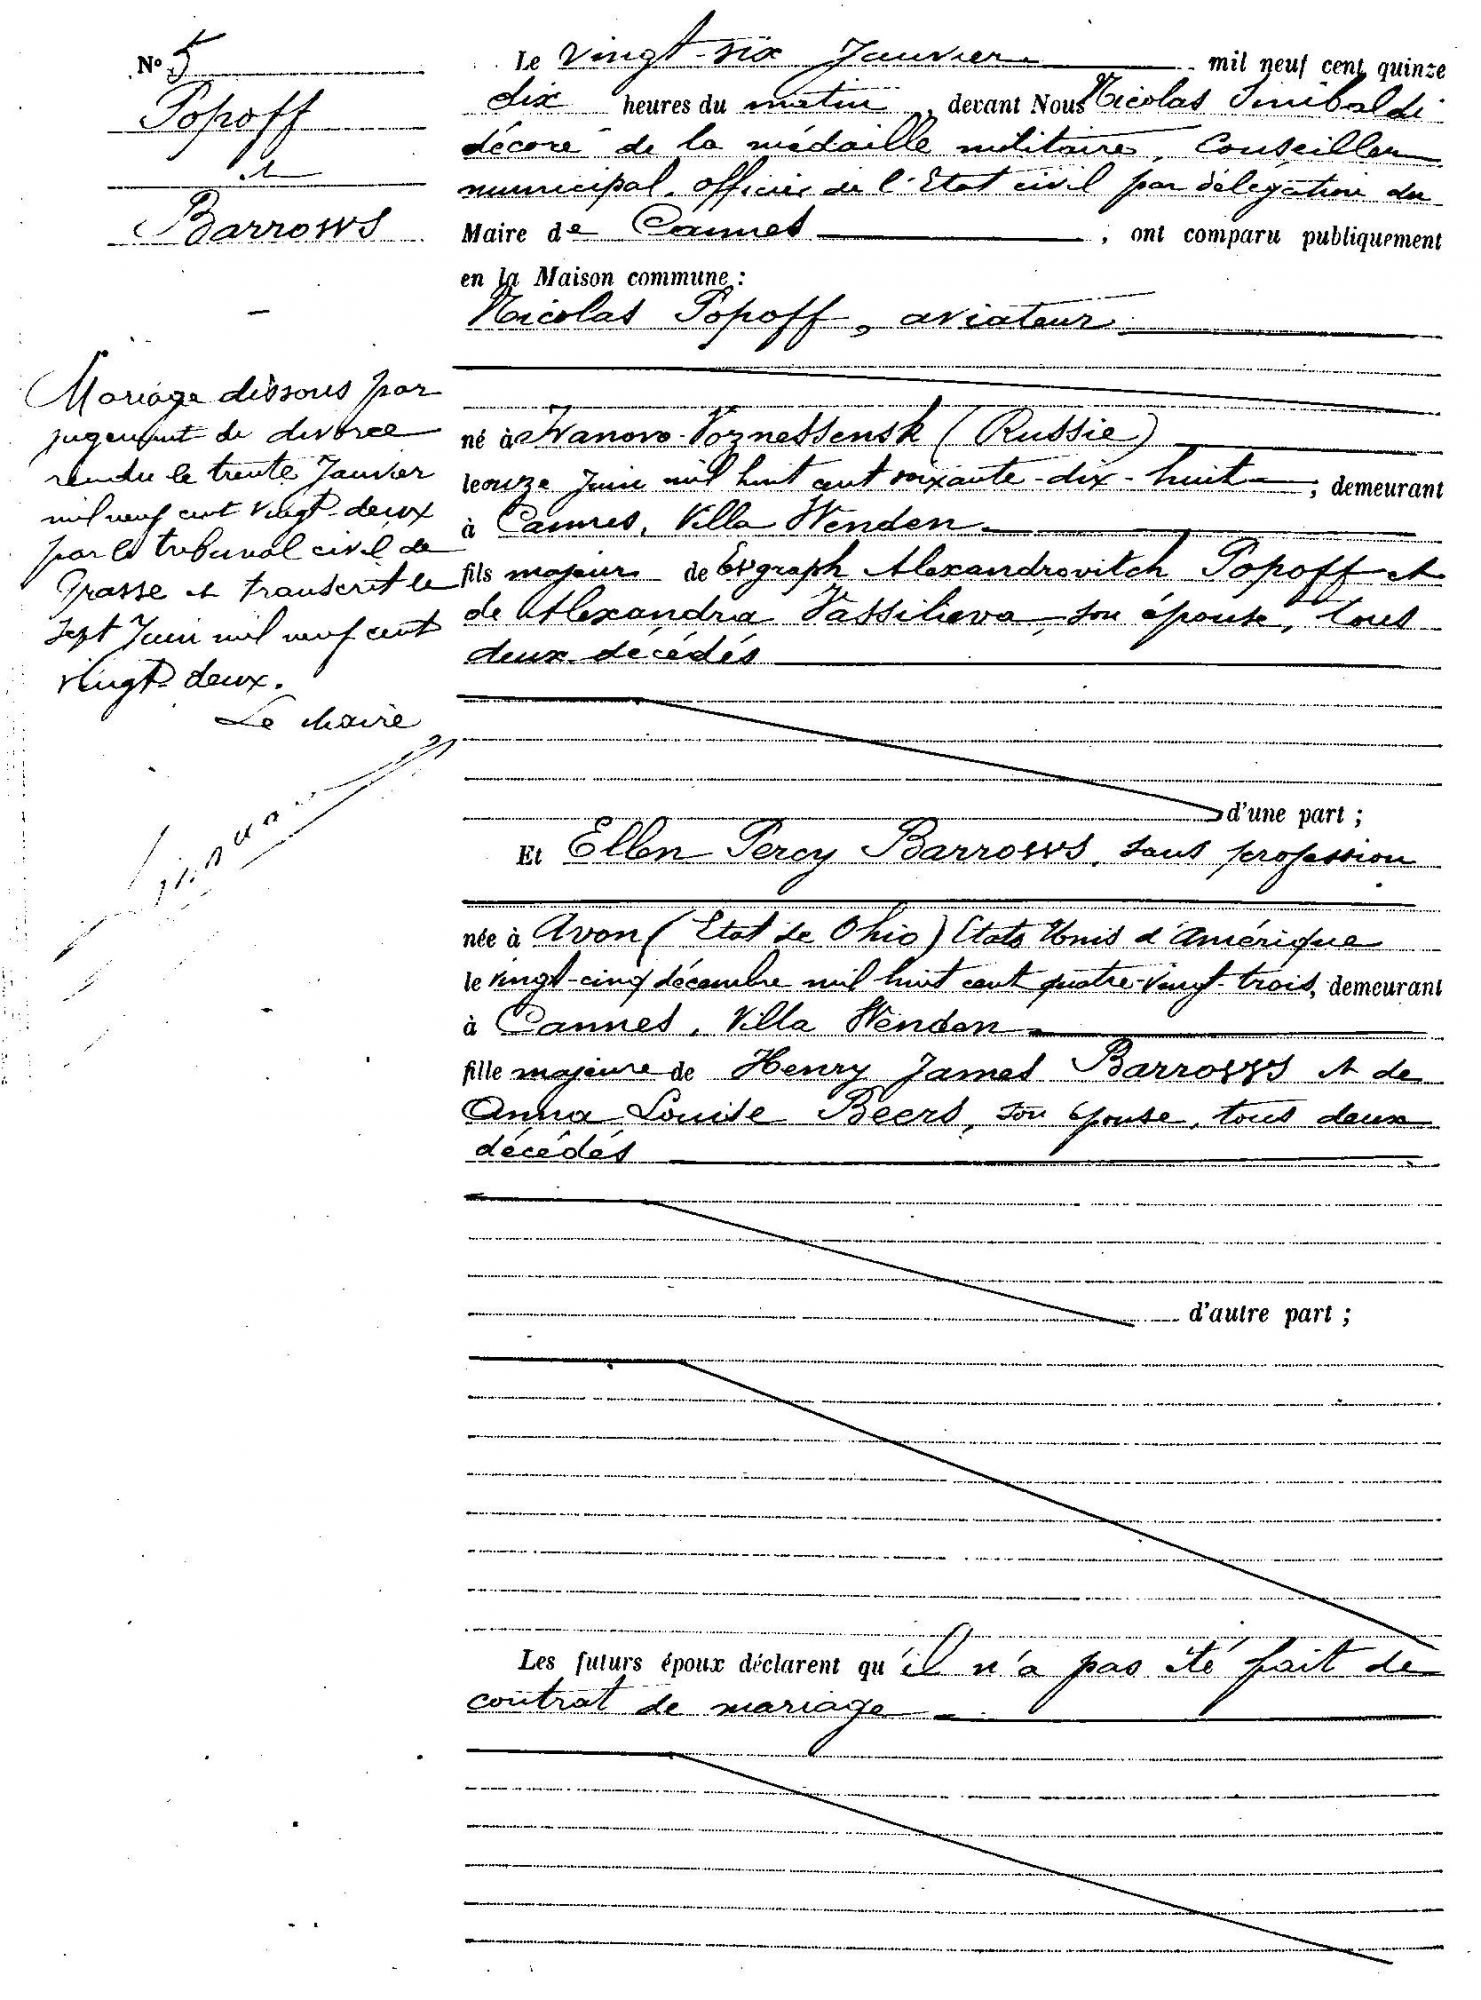 N° 5
Popoff
et
Barrows
Mariage dissous par
jugement de divorce
rendu le trente Janvier
mil neuf cent vingt-deux
par le tribunal civil de
Grasse et transcrit le
sept Juin mil neuf cent
vingt-deux.
Le Maire
Le vingt-six Janvier mil neuf cent quinze
dix heures du matin, devant Nous Nicolas Sinibaldi
décoré de la médaille militaire, Conseiller
municipal, officier de l'Etat civil par délégation du
Maire de Cannes, ont comparu publiquement
en la Maison commune :
Nicolas Popoff, aviateur
né à Ivanovo-Voznessensk (Russie)
le onze Juin mil huit cent soixante-dix-huit, demeurant
à Cannes, Villa Wenden
fils majeur de Evgraph Alexandrovitch Popoff et
de Alexandra Vassilieva, son épouse, tous
deux décédés
d'une part ;
Et Ellen Percy Barrows, sans profession
née à Avon (Etat de Ohio) Etats Unis d'Amérique
le vingt-cinq décembre mil huit cent quatre-vingt-trois, demeurant
à Cannes, Villa Wenden
fille majeure de Henry James Barrows et de
Anna Louise Beers, son épouse, tous deux
décédés
d'autre part ;
Les futurs époux déclarent qu'il n'a pas été fait de
contrat de mariage